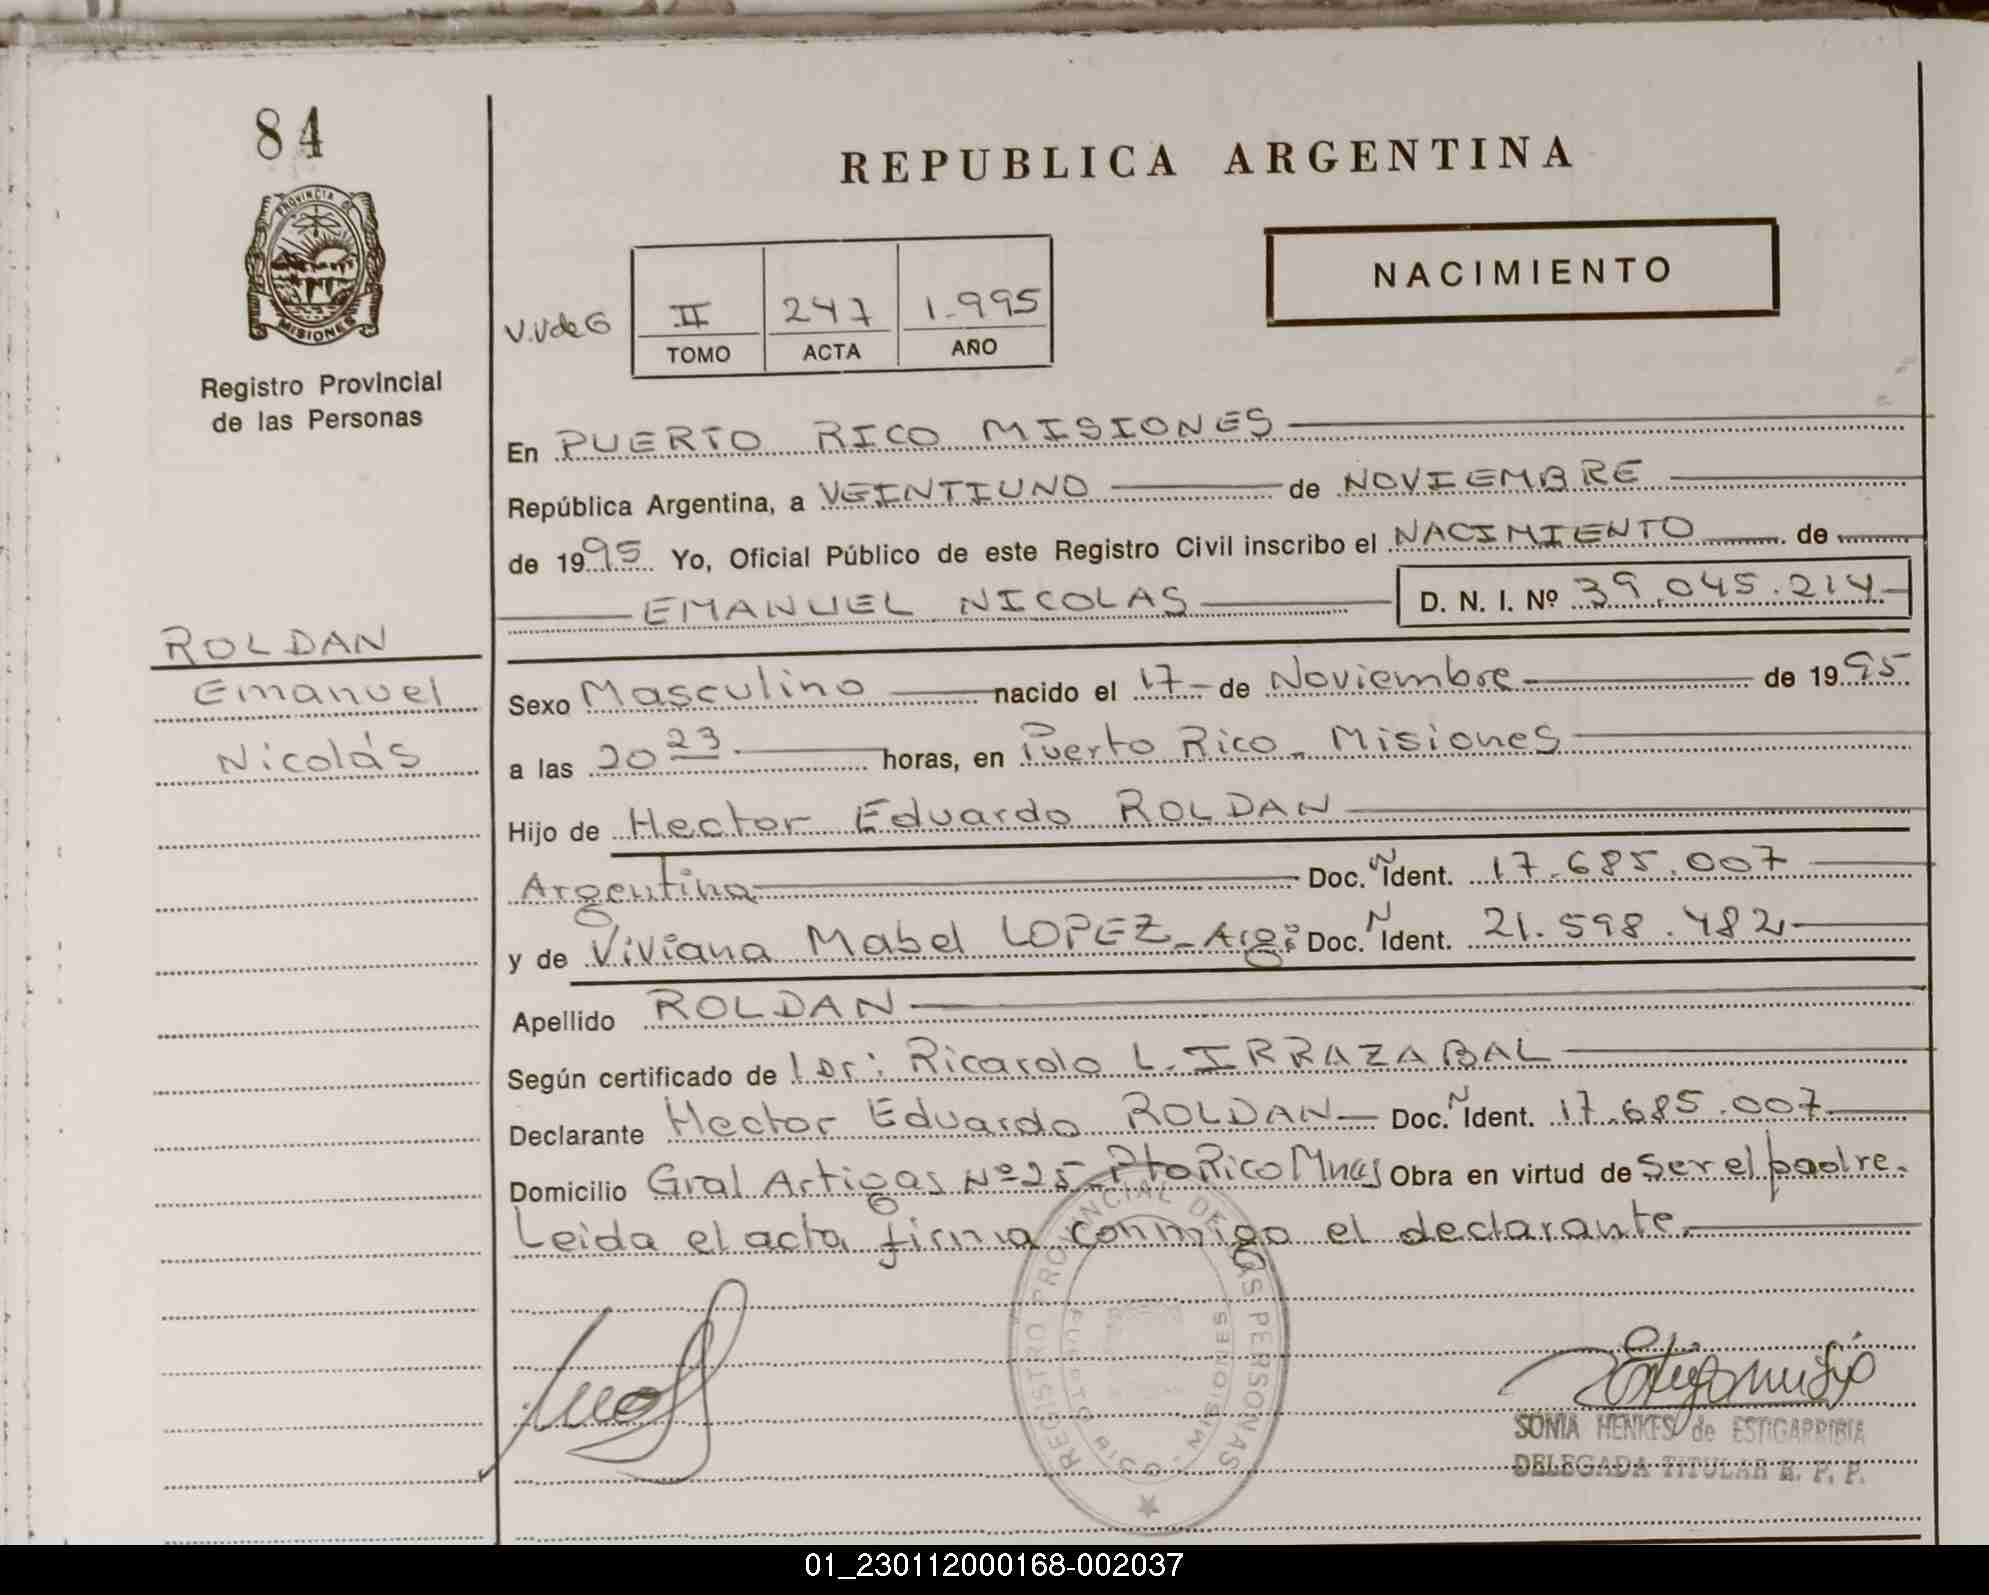 84
REPUBLICA ARGENTINA
PROVINCIA DE
MISIONES
Registro Provincial
de las Personas
NACIMIENTO
V.V de G
II 247 1.995
TOMO ACTA AÑO
En PUERTO RICO MISIONES
República Argentina, a VEINTIUNO de NOVIEMBRE
de 1995 Yo, Oficial Público de este Registro Civil inscribo el NACIMIENTO de
EMANUEL NICOLAS D. N. I. Nº 39.045.214
ROLDAN
Emanuel
Nicolás
Sexo Masculino nacido el 17 de Noviembre de 1995
a las 20 23 horas, en Puerto Rico - Misiones
Hijo de Hector Eduardo ROLDAN
Argentina Doc. N Ident. 17.685.007
y de Viviana Mabel LOPEZ - Arg: Doc. N Ident. 21.598.482
Apellido ROLDAN
Según certificado de Dr: Ricardo L. IRRAZABAL
Declarante Hector Eduardo ROLDAN Doc. N Ident. 17.685.007
Domicilio Gral Artigas Nº 25 - Pto Rico Mnes Obra en virtud de ser el padre.
Leida el acta firma conmigo el declarante.
REGISTRO PROVINCIAL DE LAS PERSONAS
PUERTO RICO - MISIONES
SONIA HENKES de ESTIGARRIBIA
DELEGADA TITULAR R. P. P.
01_230112000168-002037